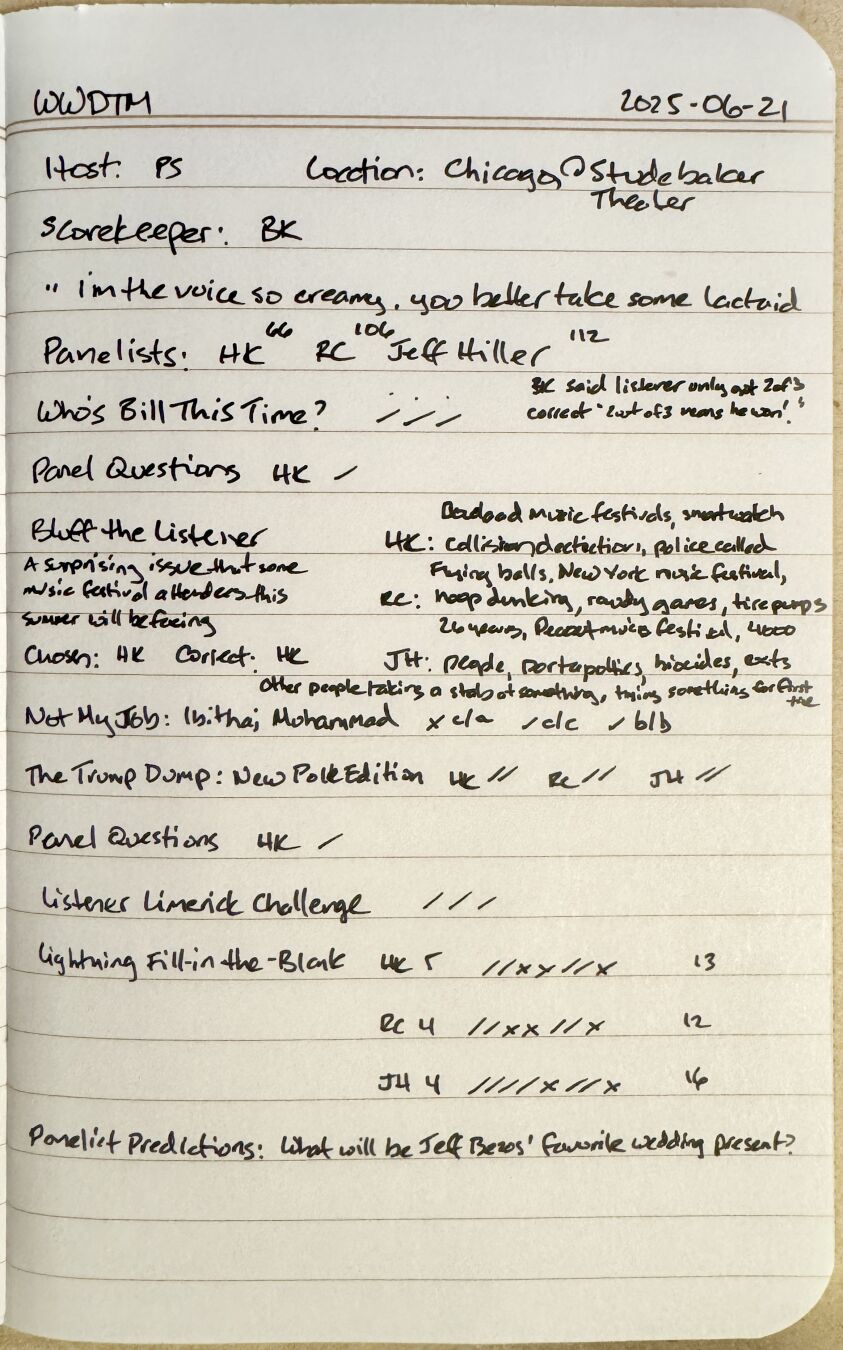 WWDTM 2025-06-21
Host: PS Location: Chicago, @ Studebaker
Theater
Scorekeeper: BK
" I'm the voice so creamy, you better take some lactaid
Panelists: HK 66 RC 106 Jeff Hiller 112
Who's Bill This Time? / / /
BK said listener only got 2 of 3
correct "2 out of 3 means he won!"
Panel Questions HK /
Bluff the Listener
A surprising issue that some
music festival attenders this
summer will be facing
Chosen: HK Correct: HK
music festivals, smartwatch
HK: collision dectection, police called
Flying balls, New York music festival,
RC: hoop dunking, rowdy games, tire pumps
26 years, music festival, 4000
JH: people, portapotties, biocides, exits
Other people taking a stab at something, trying something for first
the
Not My Job: Ibithaj Mohammad x c/a / c/c / b/b
The Trump Dump: New Polk Edition HK // RC // JH //
Panel Questions HK /
Listener Limerick Challenge / / /
Lightning Fill-in-the-Blank HK 5 //xx//x 13
RC 4 //xx//x 12
JH 4 ////x//x 16
Panelist Predictions: What will be Jeff Bezos' favorite wedding present?